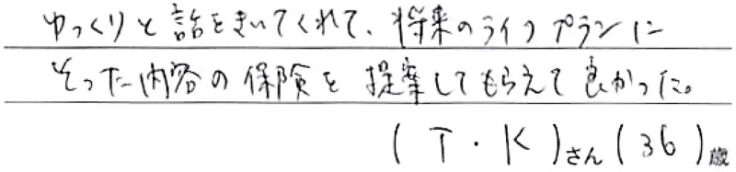 ゆっくりと話をきいてくれて、将来のライフプランに
そった内容の保険を提案してもらえて良かった。
(T・K)さん(36)歳